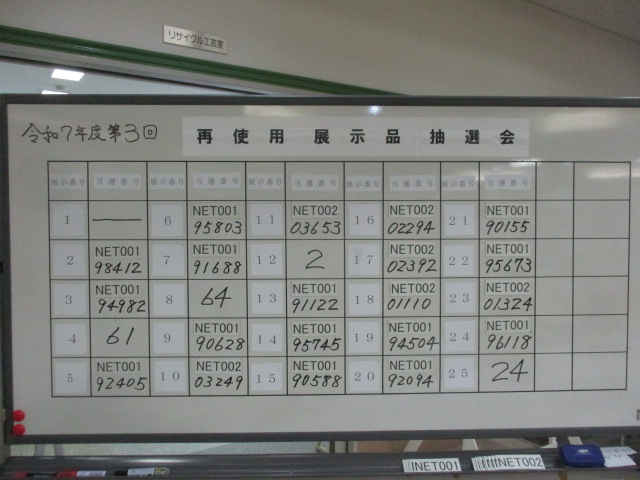 リサイクル工芸室
令和7年度第3回
再使用展示品抽選会
展示番号 当選番号 展示番号 当選番号 展示番号 当選番号 展示番号 当選番号 展示番号 当選番号
1 — 6 NET001 95803 11 NET002 03653 16 NET002 02294 21 NET001 90155
2 NET001 98412 7 NET001 91688 12 2 17 NET002 02392 22 NET001 95673
3 NET001 94982 8 64 13 NET001 91122 18 NET002 01110 23 NET002 01324
4 61 9 NET001 90628 14 NET001 95745 19 NET001 94504 24 NET001 96118
5 NET001 92405 10 NET002 03249 15 NET001 90588 20 NET001 92094 25 24
NET001 NET002